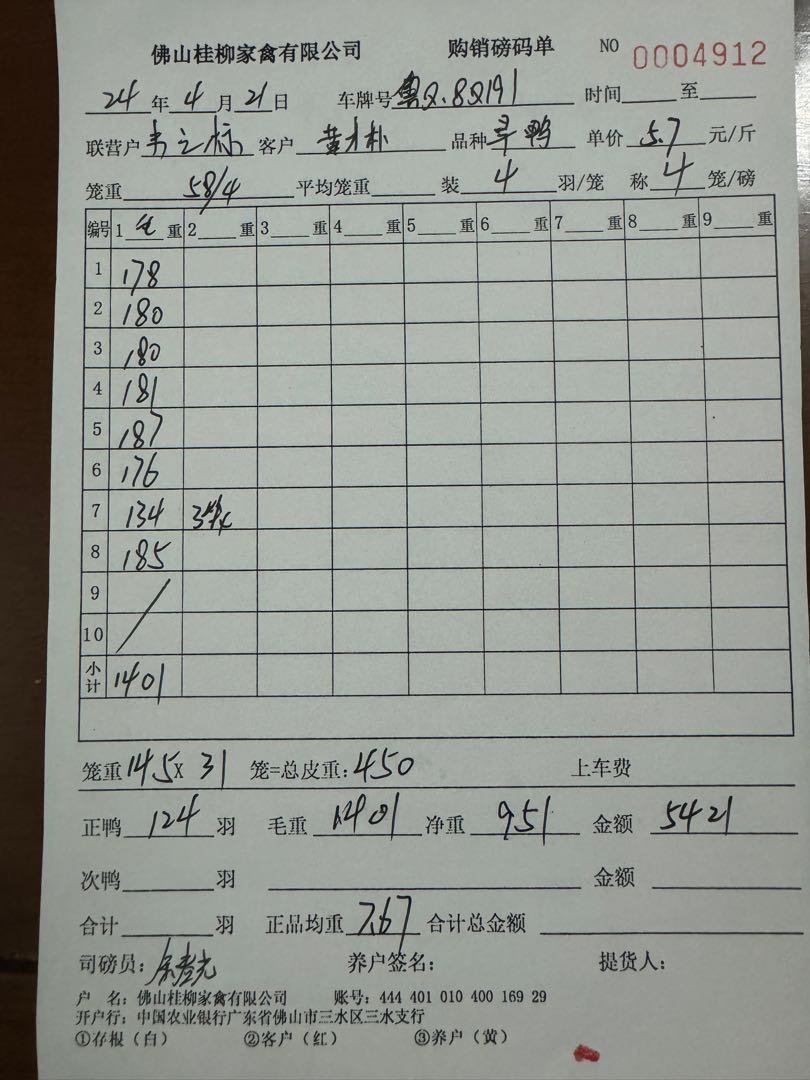 佛山桂柳家禽有限公司 购销磅码单 NO 0004912
24年4月21日 车牌号 时间____至____
联营户 客户 品种旱鸭 单价5.7元/斤
笼重58/4 平均笼重____装4羽/笼 称4笼/磅
编号 1 毛 重 2____重 3____重 4____重 5____重 6____重 7____重 8____重 9____重
1 178
2 180
3 180
4 181
5 187
6 176
7 134 3
8 185
9
10
小计 1401
笼重14.5X31笼=总皮重:450 上车费
正鸭124羽 毛重1401净重951 金额5421
次鸭____羽 金额____
合计____羽 正品均重7.67合计总金额____
司磅员: 养户签名: 提货人:
户 名:佛山桂柳家禽有限公司 账号:444 401 010 400 169 29
开户行:中国农业银行广东省佛山市三水区三水支行
①存根(白) ②客户(红) ③养户(黄)